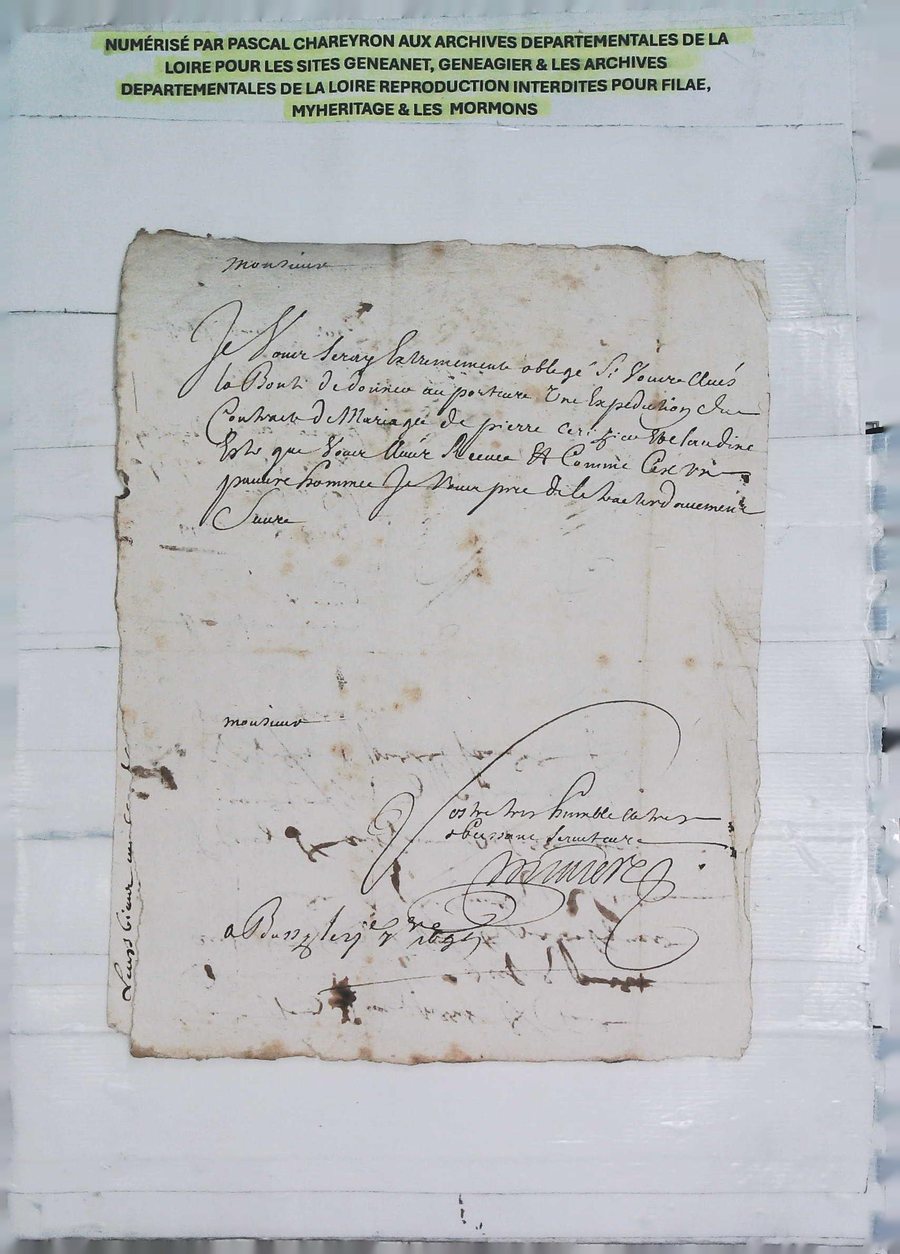 NUMÉRISÉ PAR PASCAL CHAREYRON AUX ARCHIVES DEPARTEMENTALES DE LA
LOIRE POUR LES SITES GENEANET, GENEAGIER & LES ARCHIVES
DEPARTEMENTALES DE LA LOIRE REPRODUCTION INTERDITES POUR FILAE,
MYHERITAGE & LES MORMONS
monsieur
Je Vous seray Extremement oblegé Si Vous Aués
la Bonté de donner au porteur Une Expedition du
Contract de Mariage de pierre
que Vous Aués Receue Et Comme Cest Un
pauure homme Je Vous prie de le
Suiure
monsieur
Vostre tres humble et tres
obeissant seruiteur
a Bussy le